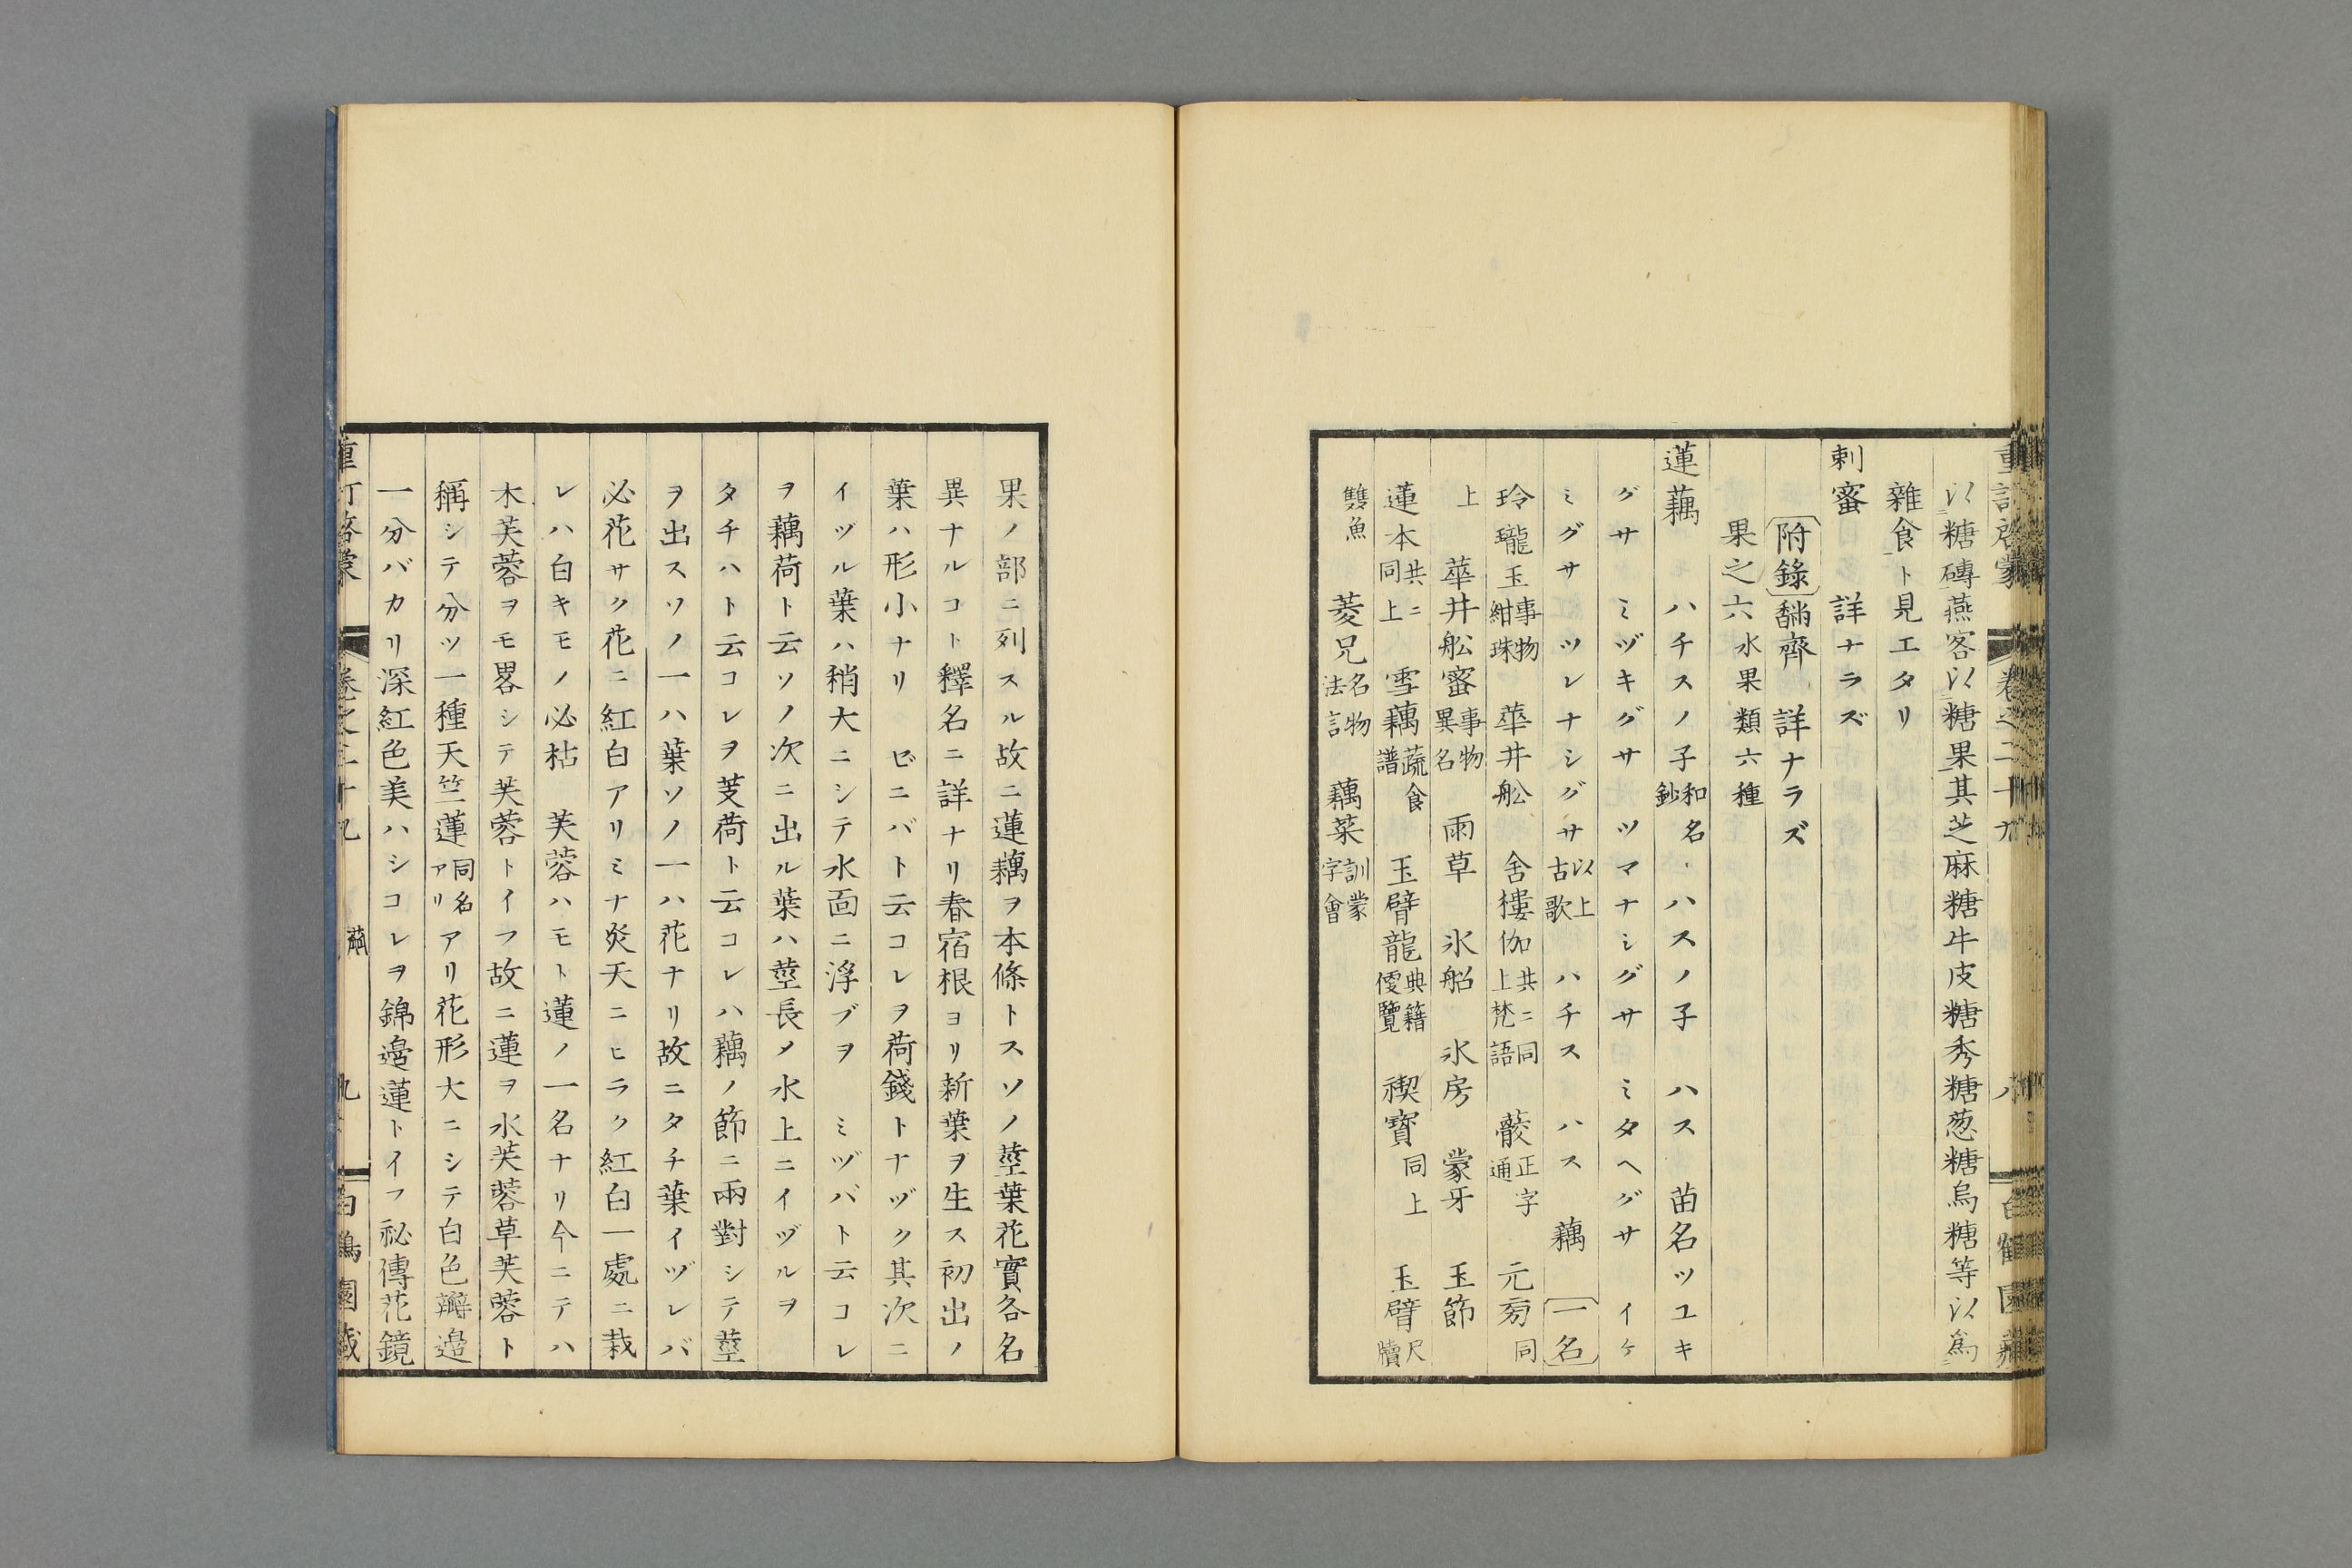 以糖磚燕客以糖果其芝麻糖牛皮糖秀糖葱糖烏糖等以為
雜食ト見エタリ
刺蜜　詳ナラズ
附錄　䤌齊　詳ナラズ
果之六　水果類六種
蓮藕　ハチスノ子和名鈔　ハスノ子　ハス　苗名ツユキ
グサ　ミヅキグサ　ツマナシグサ　ミタヘグサ　イケ
ミグサ　ツレナシグサ以上古歌　ハチス　ハス　藕　一名
玲瓏玉事物紺珠　華井舩　舍樓伽共ニ同上梵語　䕘正字通　元芴同
上　華井舩蜜事物異名　雨草　氷船　氷房　蒙牙　玉節
蓮本共ニ同上　雪藕蔬食譜　玉臂龍典籍便覽　禊寳同上　玉臂尺牘
雙魚　菱兄名物法言　藕菜訓蒙字會
果ノ部ニ列スル故ニ蓮藕ヲ本條トスソノ莖葉花實各名
異ナルコト釋名ニ詳ナリ春宿根ヨリ新葉ヲ生ス初出ノ
葉ハ形小ナリ　ゼニバト云コレヲ荷錢トナヅク其次ニ
イヅル葉ハ稍大ニシテ水面ニ浮ブヲ　ミヅバト云コレ
ヲ藕荷ト云ソノ次ニ出ル葉ハ莖長メ水上ニイヅルヲ
タチハト云コレヲ芰荷ト云コレハ藕ノ節ニ兩對シテ莖
ヲ出スソノ一ハ葉ソノ一ハ花ナリ故ニタチ葉イヅレバ
必花サク花ニ紅白アリミナ炎天ニヒラク紅白一處ニ栽
レハ白キモノ必枯　芙蓉ハモト蓮ノ一名ナリ今ニテハ
木芙蓉ヲモ畧シテ芙蓉トイフ故ニ蓮ヲ水芙蓉草芙蓉ト
稱シテ分ツ一種天竺蓮同名アリアリ花形大ニシテ白色瓣邉
一分バカリ深紅色美ハシコレヲ錦邉蓮トイフ祕傳花鏡